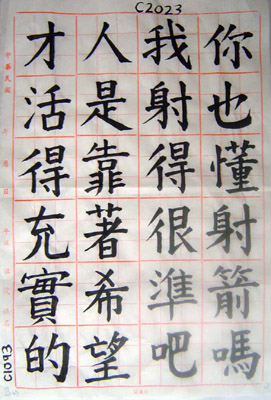 C2023
你也懂射箭嗎
我射得很準吧
人是靠著希望
才活得充實的
C1093